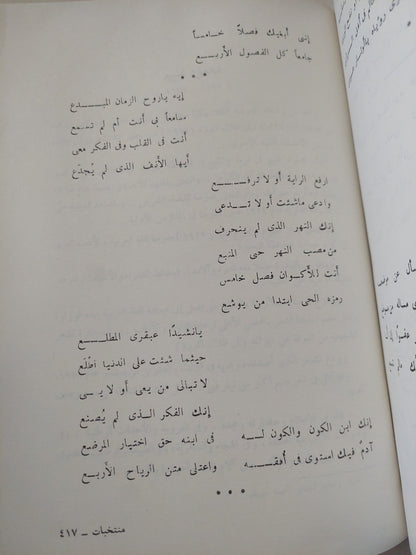 إنى أبغيك فصلاً خامساً
جامعاً كل الفصول الأربع
* * *
إيه ياروح الزمان المبدع
سامعاً بى أنت أم لم تسمع
أنت فى القلب وفى الفكر معى
أيها الأنف الذى لم يُجدَع
ارفع الراية أو لا ترفع
وادعى ماشئت أو لا تدعى
إنك النهر الذى لم ينحرف
من مصب النهر حتى المنبع
أنت للأكوان فصل خامس
رمزه الحى ابتدا من يوشع
يانشيدًا عبقرى المطلع
حيثما شئت على الدنيا اطلع
لا تبالى من يعى أو لا يـ
إنك الفكر الذى لم يُصنع
إنك ابن الكون والكون له فى ابنه حق اختيار المرضع
آدم فيك استوى فى أفقه واعتلى متن الرياح الأربع
* * *
منتخبات – ٤١٧